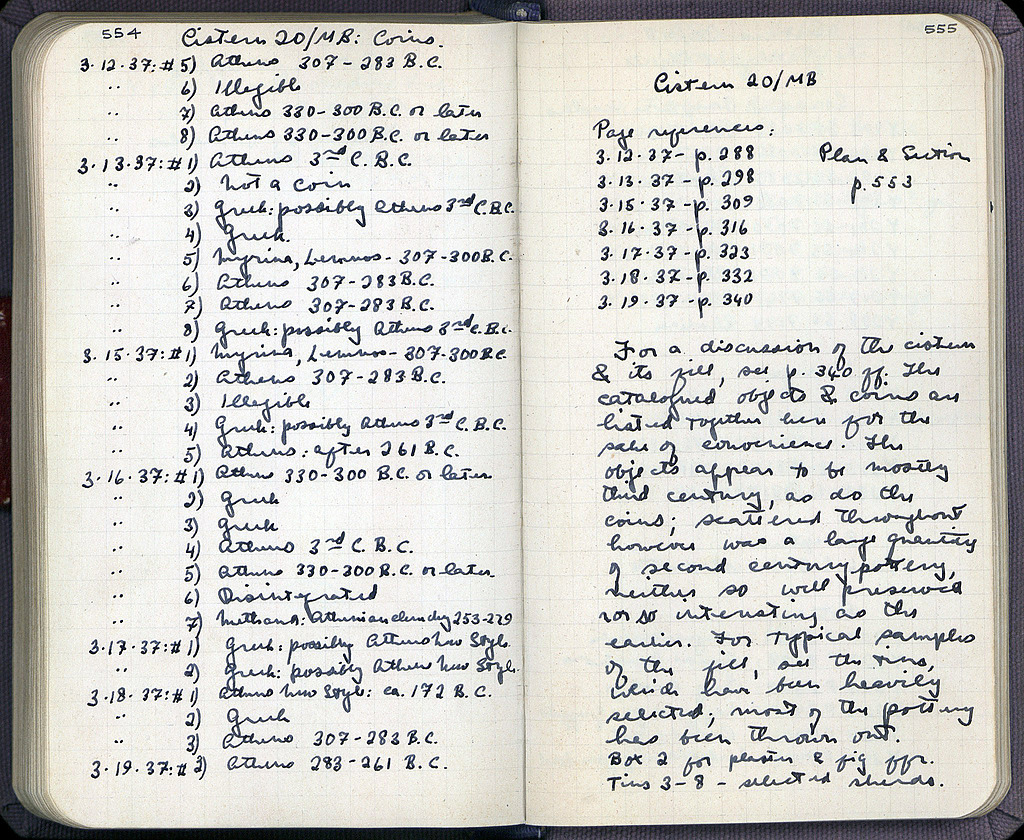 554
Cistern 20/MB: Coins.
3·12·37: # 5) Athens 307-283 B.C.
" 6) Illegible
" 7) Athens 330-300 B.C. or later
" 8) Athens 330-300 B.C. or later
3·13·37: # 1) Athens 3rd C. B.C.
" 2) Not a coin
" 3) Greek: possibly Athens 3rd C. B.C.
" 4) Greek.
" 5) Myrina, Lemnos - 307-300 B.C.
" 6) Athens 307-283 B.C.
" 7) Athens 307-283 B.C.
" 8) Greek: possibly Athens 3rd C. B.C.
3·15·37: # 1) Myrina, Lemnos - 307-300 B.C.
" 2) Athens 307-283 B.C.
" 3) Illegible
" 4) Greek: possibly Athens 3rd C. B.C.
" 5) Athens: after 261 B.C.
3·16·37: # 1) Athens 330-300 B.C. or later
" 2) Greek
" 3) Greek
" 4) Athens 3rd C. B.C.
" 5) Athens 330-300 B.C. or later
" 6) Disintegrated
" 7) Methana: Athenian cleruchy 253-229
3·17·37: # 1) Greek: possibly Athens New Style
" 2) Greek: possibly Athens New Style
3·18·37: # 1) Athens New Style: ca. 172 B.C.
" 2) Greek
" 3) Athens 307-283 B.C.
3·19·37: # 2) Athens 283-261 B.C.
555
Cistern 20/MB
Page references:
3·12·37 - p. 288 Plan & Section
3·13·37 - p. 298 p. 553
3·15·37 - p. 309
3·16·37 - p. 316
3·17·37 - p. 323
3·18·37 - p. 332
3·19·37 - p. 340
For a discussion of the cistern
& its fill, see p. 340 ff. The
catalogued objects & coins are
listed together here for the
sake of convenience. The
objects appear to be mostly
third century, as do the
coins; scattered throughout
however was a large quantity
of second century pottery,
neither so well preserved
nor so interesting as the
earlier. For typical samples
of the fill, see the tins,
which have been heavily
selected; most of the pottery
has been thrown out.
Box 2 for plaster & fig. ffr.
Tins 3-8 - selected sherds.